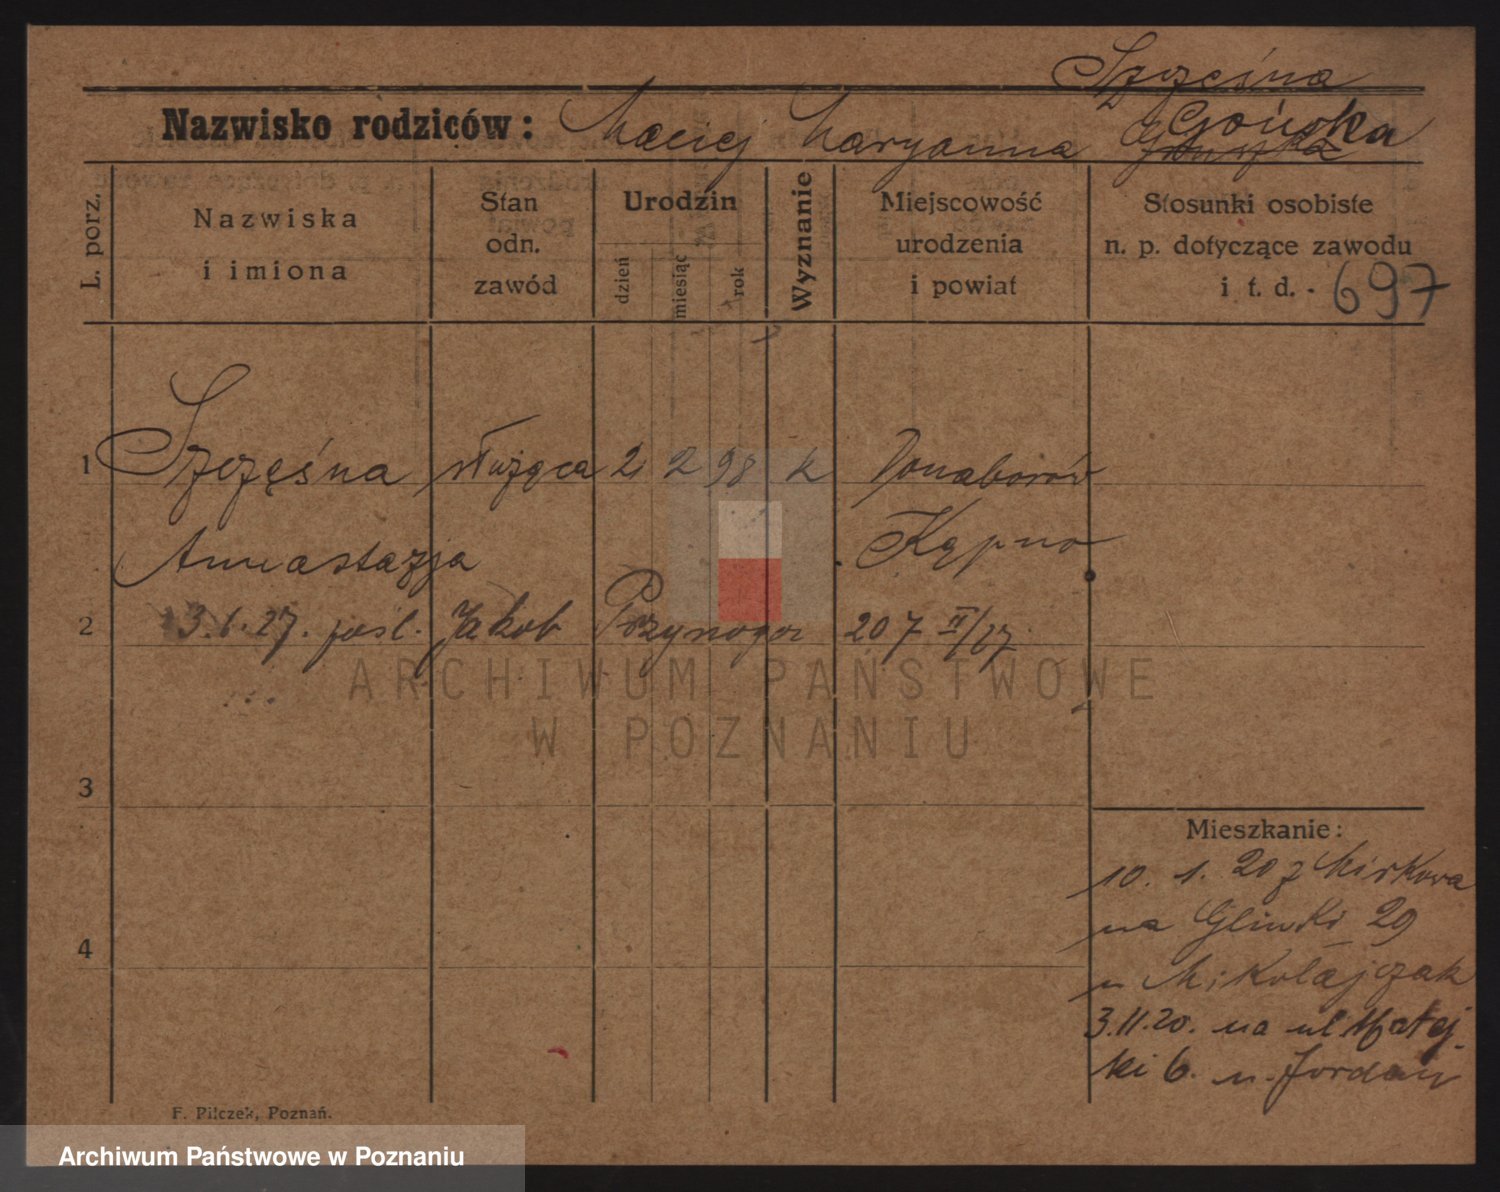 Szczęśna
Nazwisko rodziców: Maciej Maryanna Gońska
L. porz.
Nazwiska
i imiona
Stan
odn.
zawód
Urodzin
dzień
miesiąc
rok
Wyznanie
Miejscowość
urodzenia
i powiat
Stosunki osobiste
n. p. dotyczące zawodu
i t. d. - 697
1 Szczęśna służąca 2 2 98 k Donaborów
Annastazja Kępno
2 3.1.27. pośl. Jakob Przynoga 207 II/27
3
4
Mieszkanie:
10. 1. 20 z Mirkowa
na Glinki 29
u Mikołajczak
3.11.20. na ul Matej-
ki 6. u. Jordan
F. Pilczek, Poznań.
ARCHIWUM PAŃSTWOWE
W POZNANIU
Archiwum Państwowe w Poznaniu